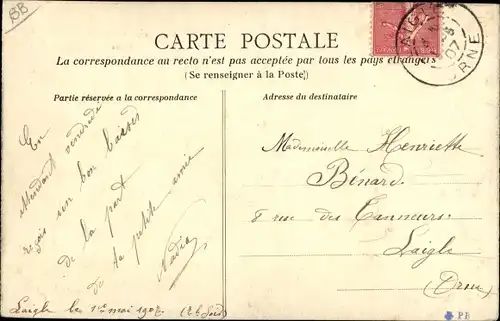 BB
CARTE POSTALE
La correspondance au recto n'est pas acceptée par tous les pays étrangers
(Se renseigner à la Poste)
Partie réservée a la correspondance
Adresse du destinataire
En
attendant vendredi
reçois un bon baiser
de la part
de ta petite amie
Nadia
Mademoiselle Henriette
Bénard
8 rue des Tanneurs
Laigle
(Orne)
Laigle le 1er mai 1907
07
ORNE
PF